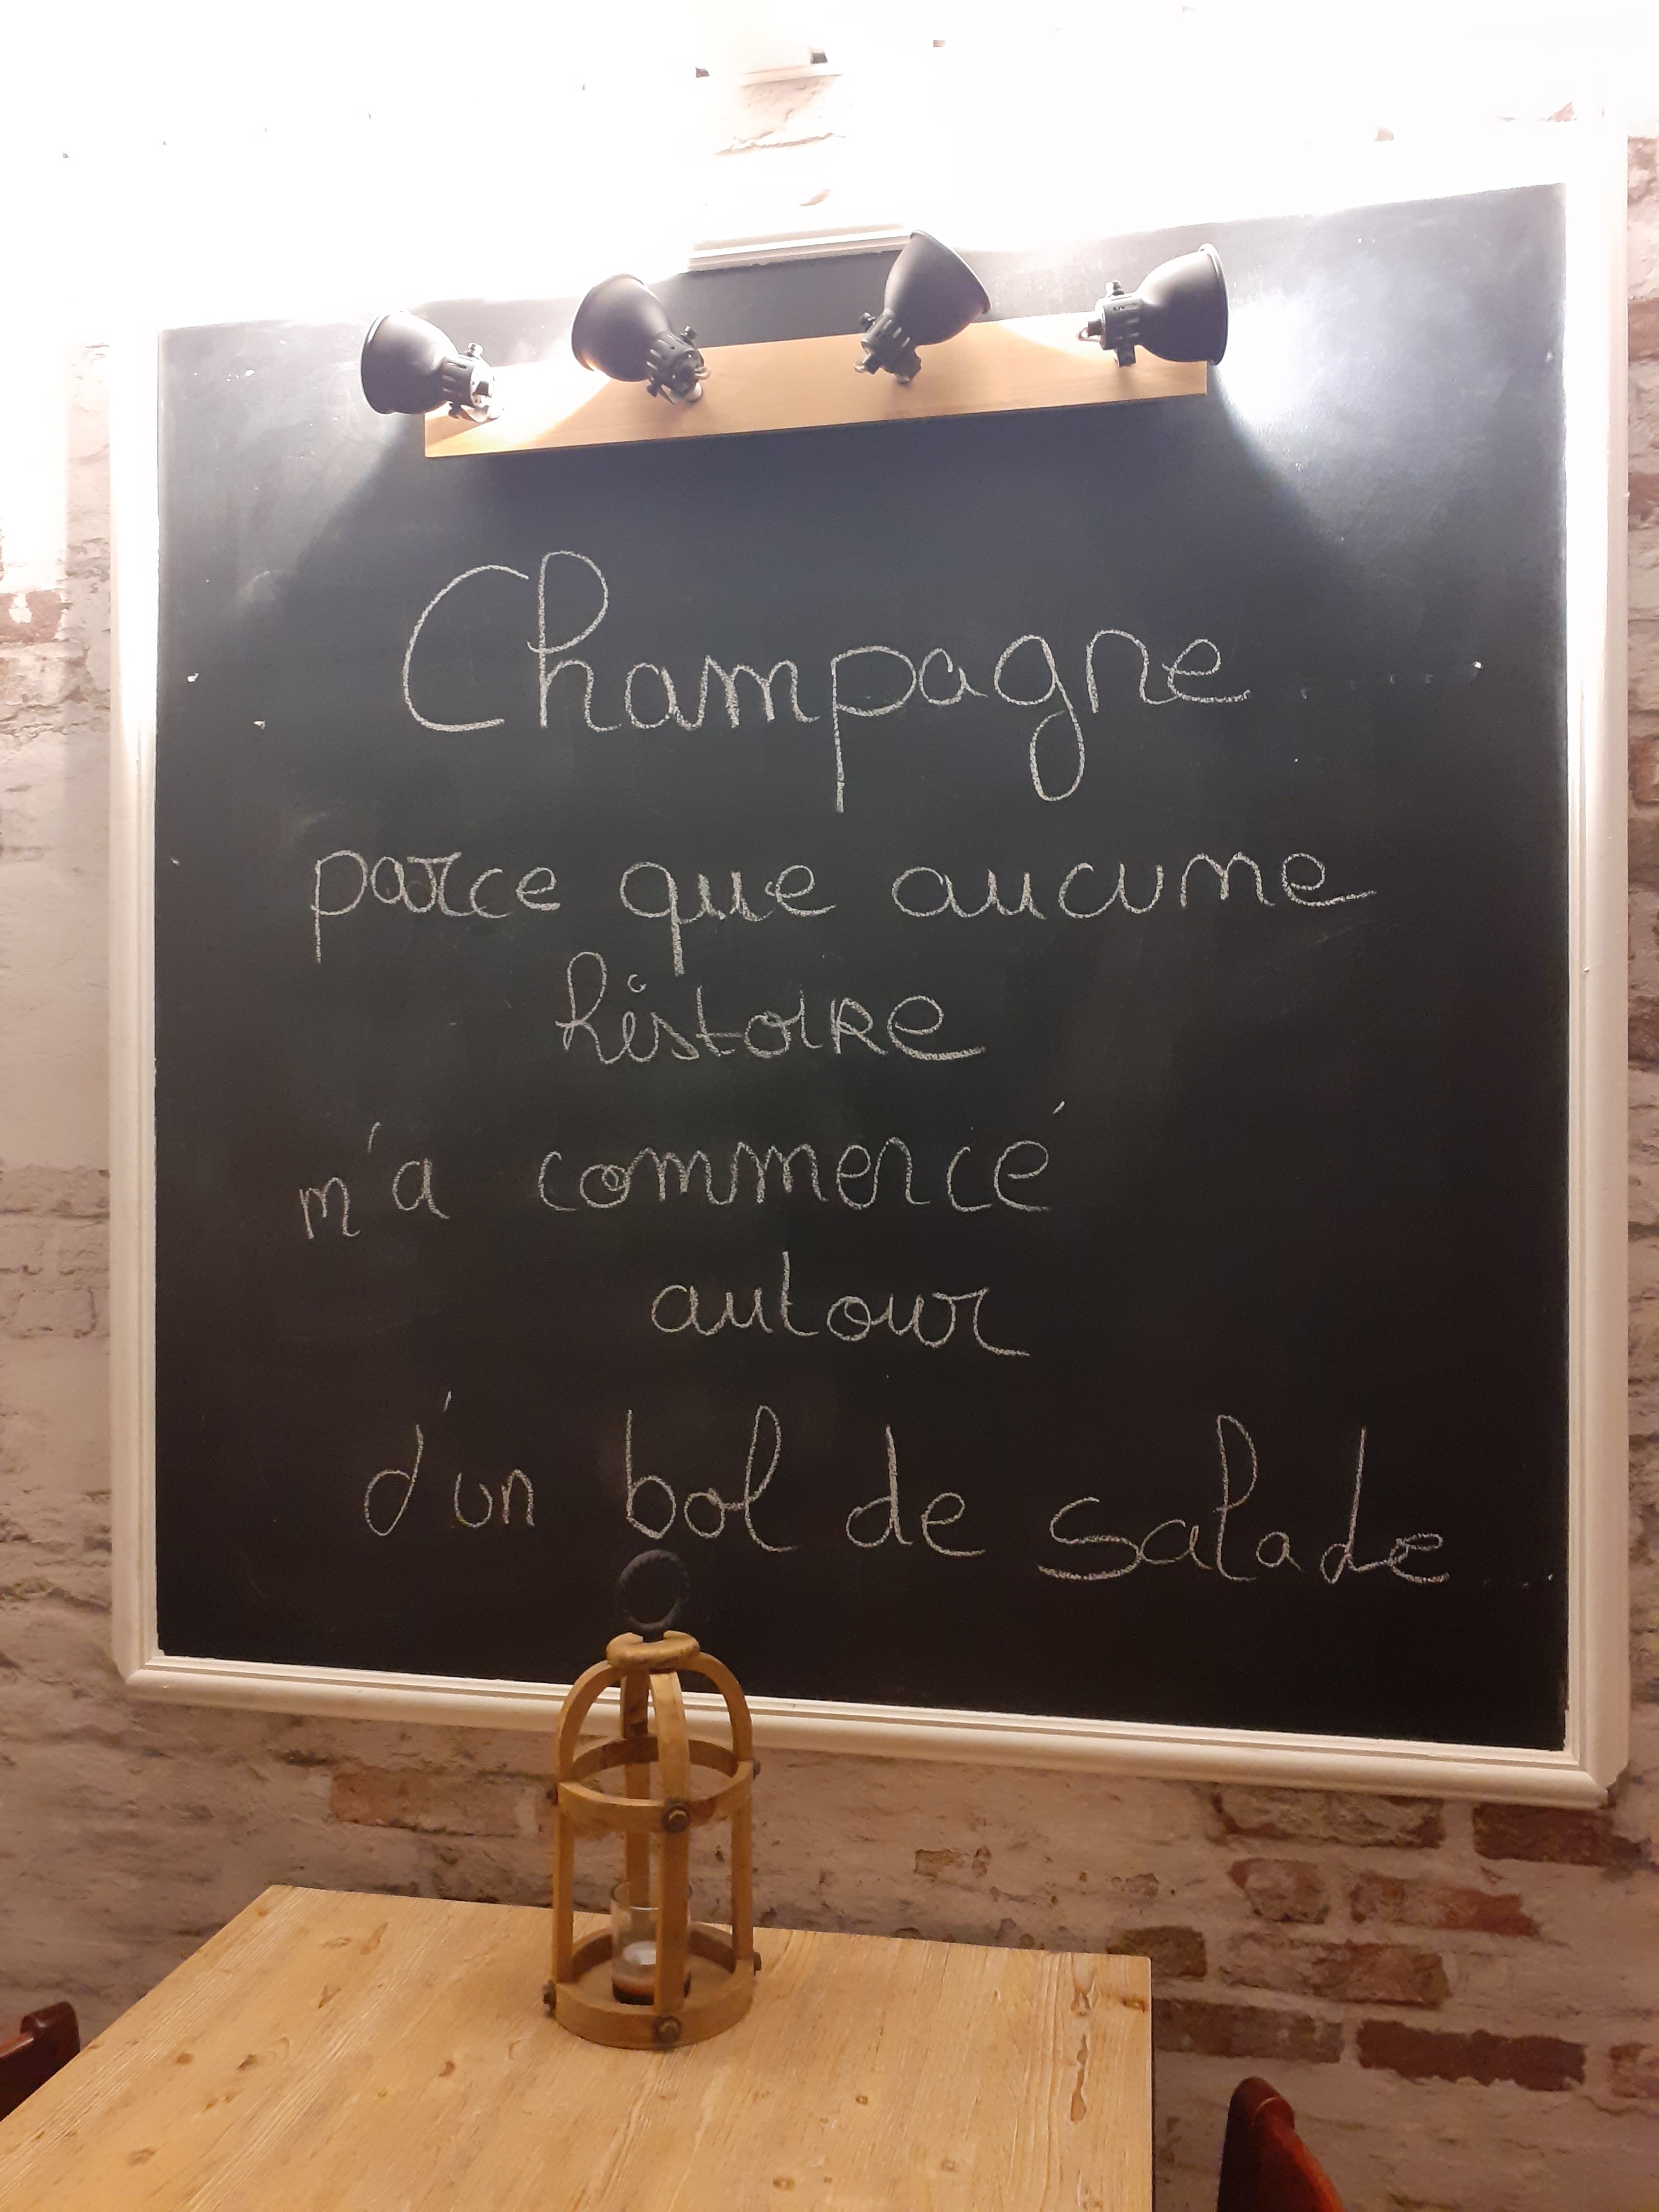 Champagne .....
parce que aucune
histoire
m'a commencé
autour
d'un bol de salade...